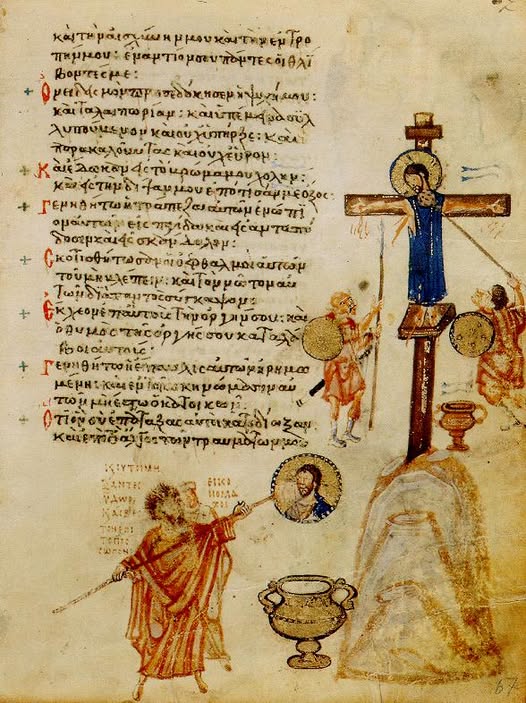 καὶ τὴν αἰσχύνην μου καὶ τὴν ἐντρο
πήν μου: ἐναντίον σου πάντες οἱ θλί
βοντές με:
Ὀνειδισμὸν προσεδόκησεν ἡ ψυχή μου:
καὶ ταλαιπωρίαν: καὶ ὑπέμεινα συλ
λυπούμενον καὶ οὐχ ὑπῆρξε: καὶ
παρακαλοῦντας καὶ οὐχ εὗρον:
Καὶ ἔδωκαν εἰς τὸ βρῶμά μου χολήν:
καὶ εἰς τὴν δίψαν μου ἐπότισάν με ὄξος:
Γενηθήτω ἡ τράπεζα αὐτῶν ἐνώπι
ον αὐτῶν εἰς παγίδα καὶ εἰς ἀνταπό
δοσιν καὶ εἰς σκάνδαλον:
Σκοτισθήτωσαν οἱ ὀφθαλμοὶ αὐτῶν
τοῦ μὴ βλέπειν: καὶ τὸν νῶτον αὐ
τῶν διὰ παντὸς σύγκαμψον:
Ἔκχεον ἐπ αὐτοὺς τὴν ὀργήν σου: καὶ
ὁ θυμὸς τῆς ὀργῆς σου καταλά
βοι αὐτούς:
Γενηθήτω ἡ ἔπαυλις αὐτῶν ἠρημω
μένη: καὶ ἐν τοῖς σκηνώμασιν αὐ
τῶν μὴ ἔστω ὁ κατοικῶν:
Ὅτι ὃν σὺ ἐπάταξας αὐτοὶ κατεδίωξαν
καὶ ἐπὶ τὸ ἄλγος τῶν τραυμάτων μου
ΞΑΝΤΕС
ΥΔΩΡ
67